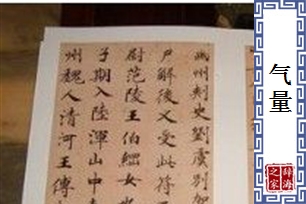 幽州刺史劉虞別駕
尸解後又受此符
尉范陵王伯鱷女
子期入陸渾山中
州魏人清河王傳
气量
辞海
之家